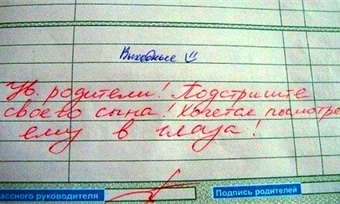 Выходные
Ув. родители! Подстригите
своего сына! Хочется посмотре
ему в глаза!
ассного руководителя
Подпись родителей